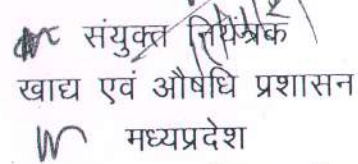 संयुक्त नियंत्रक
खाद्य एवं औषधि प्रशासन
मध्यप्रदेश